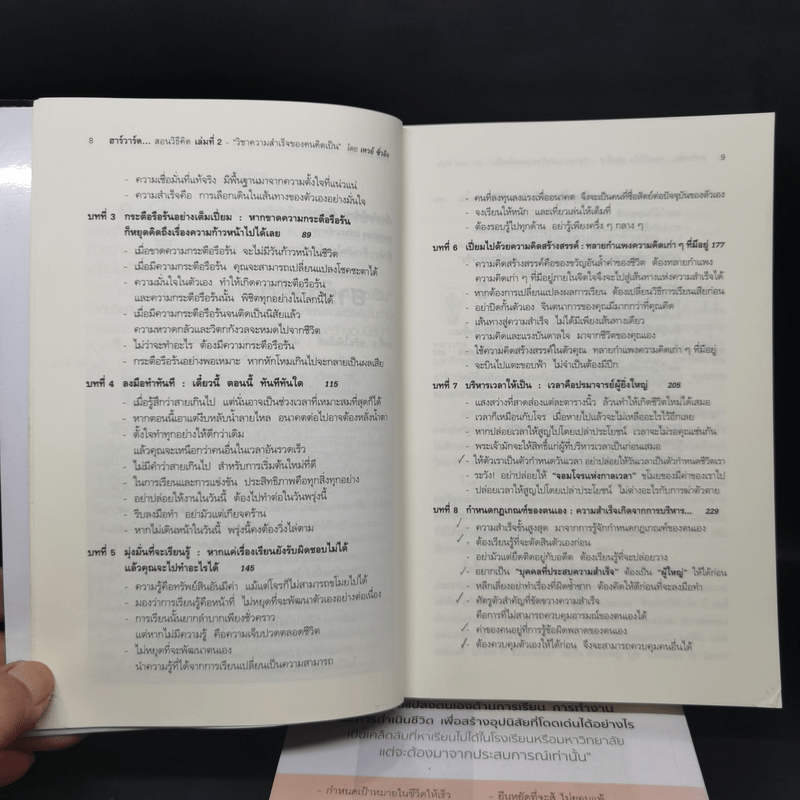 8 ฮาร์วาร์ด... สอนวิธีคิด เล่มที่ 2 - "วิชาความสำเร็จของคนคิดเป็น" โดย เหวย์ ซิ่วอิง
- ความเชื่อมั่นที่แท้จริง มีพื้นฐานมาจากความตั้งใจที่แน่วแน่
- ความสำเร็จคือ การเลือกเดินในเส้นทางของตัวเองอย่างมั่นใจ
บทที่ 3 กระตือรือร้นอย่างเต็มเปี่ยม : หากขาดความกระตือรือร้น
ก็หยุดคิดถึงเรื่องความก้าวหน้าไปได้เลย 89
- เมื่อขาดความกระตือรือร้น จะไม่มีวันก้าวหน้าในชีวิต
- เมื่อมีความกระตือรือร้น คุณจะสามารถเปลี่ยนแปลงโชคชะตาได้
- ความมั่นใจในตัวเอง ทำให้เกิดความกระตือรือร้น
และความกระตือรือร้นนั้น พิชิตทุกอย่างในโลกนี้ได้
- เมื่อมีความกระตือรือร้นจนติดเป็นนิสัยแล้ว
ความหวาดกลัวและวิตกกังวลจะหมดไปจากชีวิต
- ไม่ว่าจะทำอะไร ต้องมีความกระตือรือร้น
- กระตือรือร้นอย่างพอเหมาะ หากหักโหมเกินไปจะกลายเป็นผลเสีย
บทที่ 4 ลงมือทำทันที : เดี๋ยวนี้ ตอนนี้ ทันทีทันใด 115
- เมื่อรู้สึกว่าสายเกินไป แต่นั่นอาจเป็นช่วงเวลาที่เหมาะสมที่สุดก็ได้
- หากตอนนี้เอาแต่งีบหลับน้ำลายไหล อนาคตต่อไปอาจต้องหลั่งน้ำตา
- ตั้งใจทำทุกอย่างให้ดีกว่าเดิม
แล้วคุณจะเหนือกว่าคนอื่นในเวลาอันรวดเร็ว
- ไม่มีคำว่าสายเกินไป สำหรับการเริ่มต้นใหม่ที่ดี
- ในการเรียนและการแข่งขัน ประสิทธิภาพคือทุกสิ่งทุกอย่าง
- อย่าปล่อยให้งานในวันนี้ ต้องไปทำต่อในวันพรุ่งนี้
- รีบลงมือทำ อย่ามัวแต่เกียจคร้าน
- หากไม่เดินหน้าในวันนี้ พรุ่งนี้คงต้องวิ่งไล่ตาม
บทที่ 5 มุ่งมั่นที่จะเรียนรู้ : หากแค่เรื่องเรียนยังรับผิดชอบไม่ได้
แล้วคุณจะไปทำอะไรได้ 145
- ความรู้คือทรัพย์สินอันมีค่า แม้แต่โจรก็ไม่สามารถขโมยไปได้
- มองว่าการเรียนรู้คือหน้าที่ ไม่หยุดที่จะพัฒนาตัวเองอย่างต่อเนื่อง
- การเรียนนั้นยากลำบากเพียงชั่วคราว
แต่หากไม่มีความรู้ คือความเจ็บปวดตลอดชีวิต
- ไม่หยุดที่จะพัฒนาตนเอง
นำความรู้ที่ได้จากการเรียนเปลี่ยนเป็นความสามารถ
9
- คนที่ลงทุนลงแรงเพื่ออนาคต จึงจะเป็นคนที่ซื่อสัตย์ต่อปัจจุบันของตัวเอง
- จงเรียนให้หนัก และเที่ยวเล่นให้เต็มที่
- ต้องรอบรู้ไปทุกด้าน อย่ารู้เพียงครึ่ง ๆ กลาง ๆ
บทที่ 6 เปี่ยมไปด้วยความคิดสร้างสรรค์ : ทลายกำแพงความคิดเก่า ๆ ที่มีอยู่ 177
- ความคิดสร้างสรรค์คือของขวัญอันล้ำค่าของชีวิต ต้องทลายกำแพง
ความคิดเก่า ๆ ที่มีอยู่ภายในจิตใจจึงจะไปสู่เส้นทางแห่งความสำเร็จได้
- หากต้องการเปลี่ยนแปลงผลการเรียน ต้องเปลี่ยนวิธีการเรียนเสียก่อน
- อย่าปิดกั้นตัวเอง จินตนาการของคุณมีมากกว่าที่คุณคิด
- เส้นทางสู่ความสำเร็จ ไม่ได้มีเพียงเส้นทางเดียว
- ความคิดและแรงบันดาลใจ มาจากชีวิตของคุณเอง
- ใช้ความคิดสร้างสรรค์ในตัวคุณ ทลายกำแพงความคิดเก่า ๆ ที่มีอยู่
- จะบินไปแตะขอบฟ้า ไม่จำเป็นต้องมีปีก
บทที่ 7 บริหารเวลาให้เป็น : เวลาคือปรมาจารย์ผู้ยิ่งใหญ่ 205
- แสงสว่างที่สาดส่องแต่ละตารางนิ้ว ล้วนทำให้เกิดชีวิตใหม่ได้เสมอ
- เวลาก็เหมือนกับโจร เมื่อหายไปแล้วจะไม่เหลืออะไรไว้อีกเลย
- หากปล่อยเวลาให้สูญไปโดยเปล่าประโยชน์ เวลาจะไม่รอคุณเช่นกัน
- พระเจ้ามักจะให้สิทธิ์แก่ผู้ที่บริหารเวลาเป็นก่อนเสมอ
- ให้ตัวเราเป็นตัวกำหนดวันเวลา อย่าปล่อยให้วันเวลาเป็นตัวกำหนดชีวิตเรา
- ระวัง! อย่าปล่อยให้ "จอมโจรแห่งกาลเวลา" ขโมยของมีค่าของเราไป
- ปล่อยเวลาให้สูญไปโดยเปล่าประโยชน์ ไม่ต่างอะไรกับการฆ่าตัวตาย
บทที่ 8 กำหนดกฎเกณฑ์ของตนเอง : ความสำเร็จเกิดจากการบริหาร... 229
- ความสำเร็จขั้นสูงสุด มาจากการรู้จักกำหนดกฎเกณฑ์ของตนเอง
- ต้องเรียนรู้ที่จะตัดสินตัวเองก่อน
- อย่ามัวแต่ยึดติดอยู่กับอดีต ต้องเรียนรู้ที่จะปล่อยวาง
- อยากเป็น "บุคคลที่ประสบความสำเร็จ" ต้องเป็น "ผู้ใหญ่" ให้ได้ก่อน
- หลีกเลี่ยงอย่าทำเรื่องที่ผิดซ้ำซาก ต้องคิดให้ดีก่อนที่จะลงมือทำ
- ศัตรูตัวสำคัญที่ขัดขวางความสำเร็จ
คือการที่ไม่สามารถควบคุมอารมณ์ของตนเองได้
- ค่าของคนอยู่ที่การรู้ข้อผิดพลาดของตนเอง
- ต้องควบคุมตัวเองให้ได้ก่อน จึงจะสามารถควบคุมคนอื่นได้
แปลงตนเองด้านการเรียน การทำงาน
การดำเนินชีวิต เพื่อสร้างอุปนิสัยที่โดดเด่นได้อย่างไร
เป็นเคล็ดลับที่หาเรียนไม่ได้ในโรงเรียนหรือมหาวิทยาลัย
แต่จะต้องมาจากประสบการณ์เท่านั้น"
- กำหนดเป้าหมายในชีวิตให้เร็ว
- ยืนหยัดที่จะสู้ ไม่ยอมแพ้